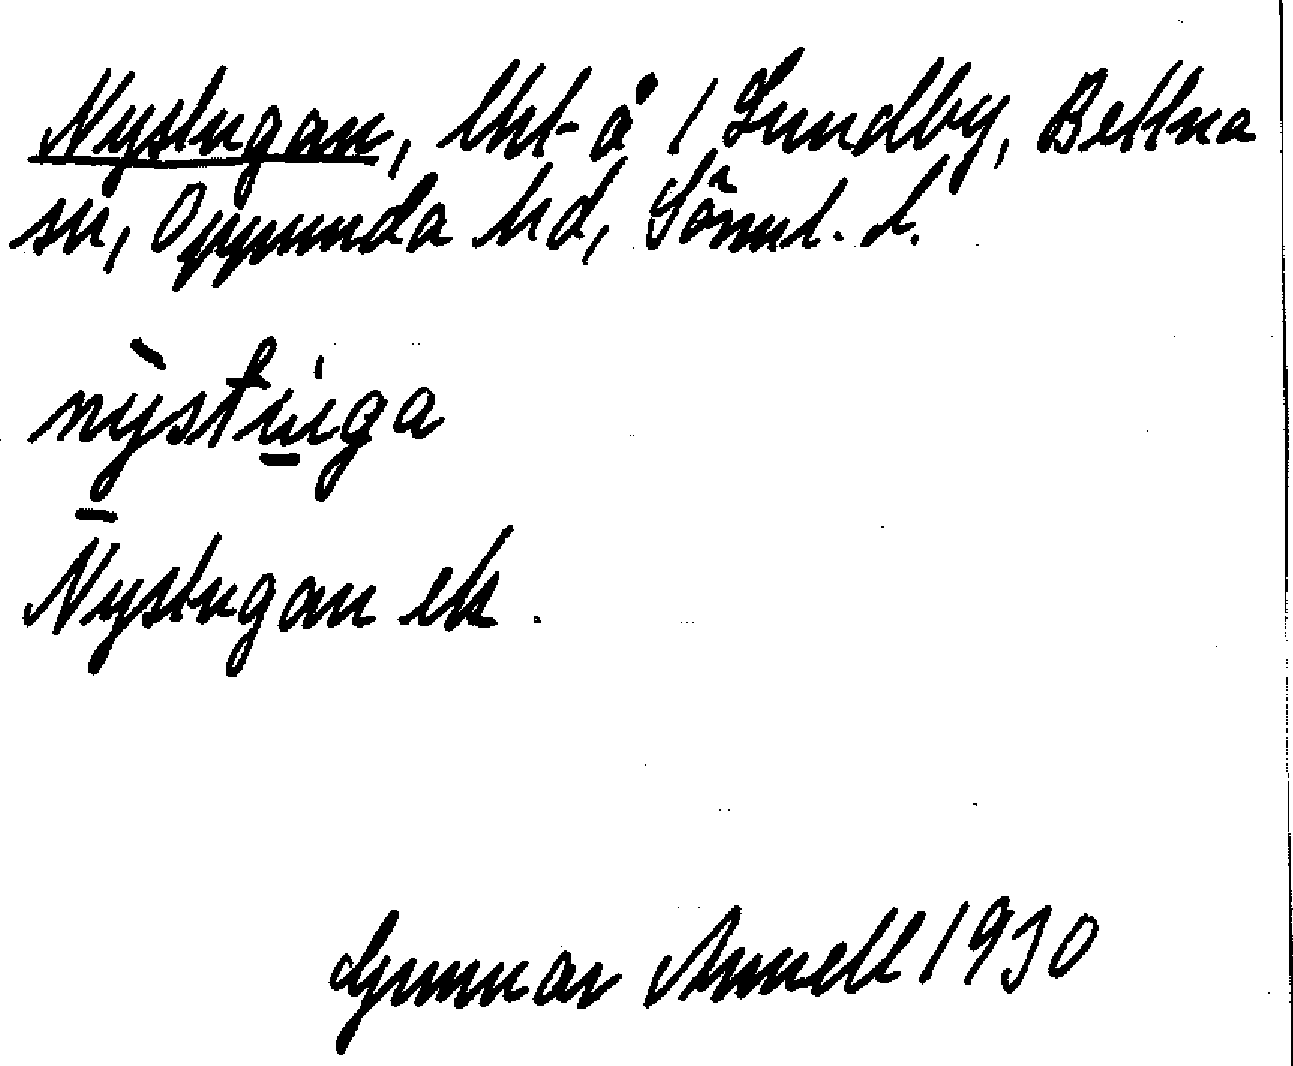 Nystugan, lht å 1 Lundby, Bettna
sn, Oppunda hd, Sörml. l.
nỳstu̱'ga
Nystugan ek.
Gunnar Annell 1930